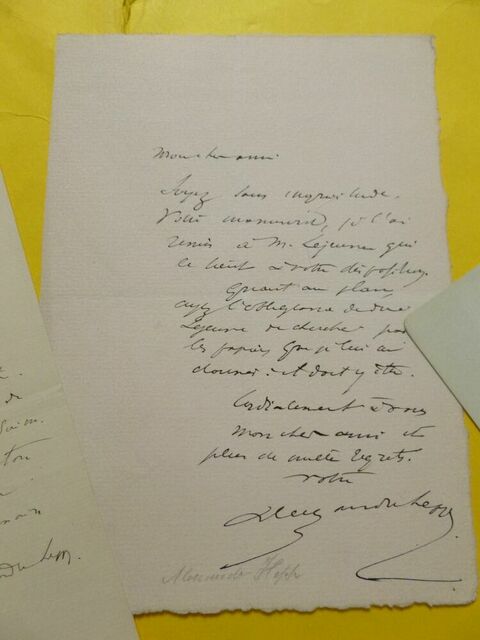 Mon cher ami
Soyez sans inquiétude.
Votre manuscrit, je l'ai
remis à M. Lejeune qui
le tient à votre disposition.
Quant au plan,
ayez l'obligeance de dire
Lejeune de chercher parmi
les papiers que je lui ai
donnés : il doit y être.
Cordialement à vous
mon cher ami et
plein de mille regrets.
votre
Alexandre Hepp
Alexandre Hepp
de
ton